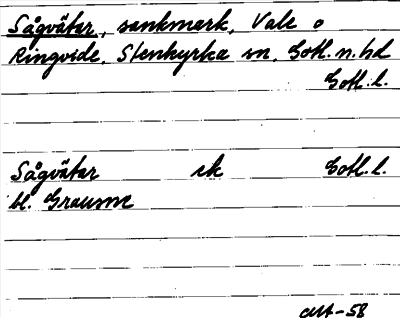 Sågvätar, sankmark, Vale o
Ringvide, Stenkyrka sn, Gotl. n. hd
Gotl. l.
Sågvätar ek Gotl. l.
bl. Graunne
-58